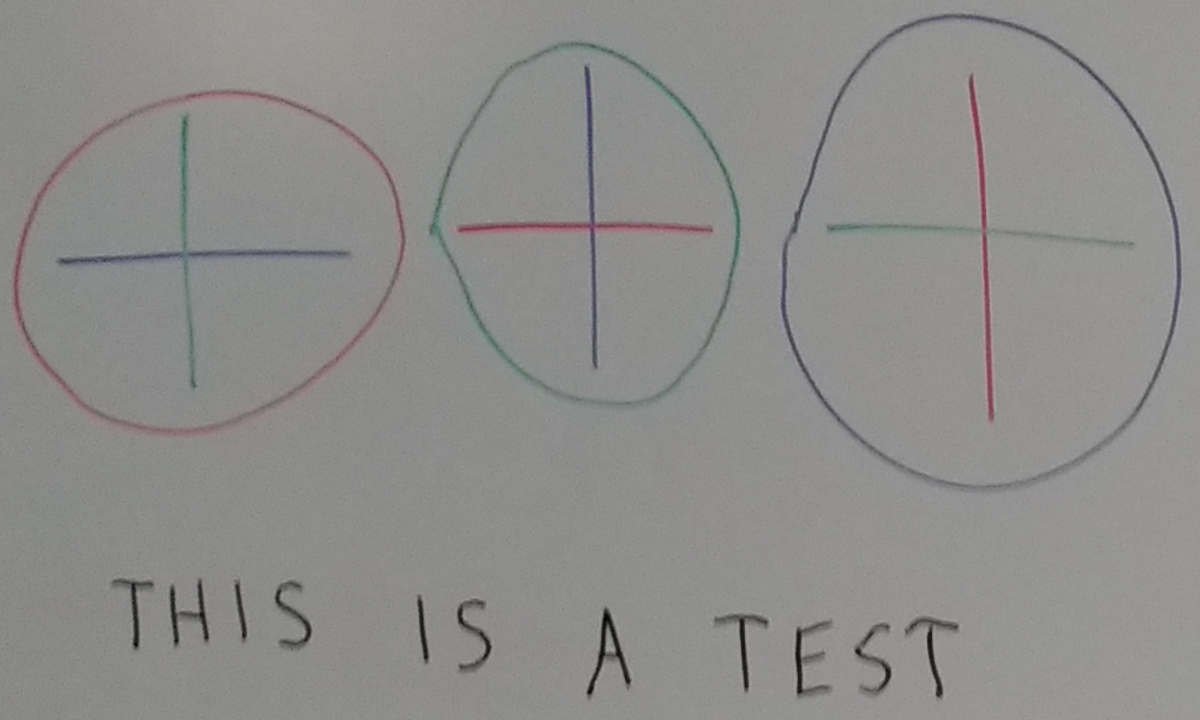 THIS IS A TEST